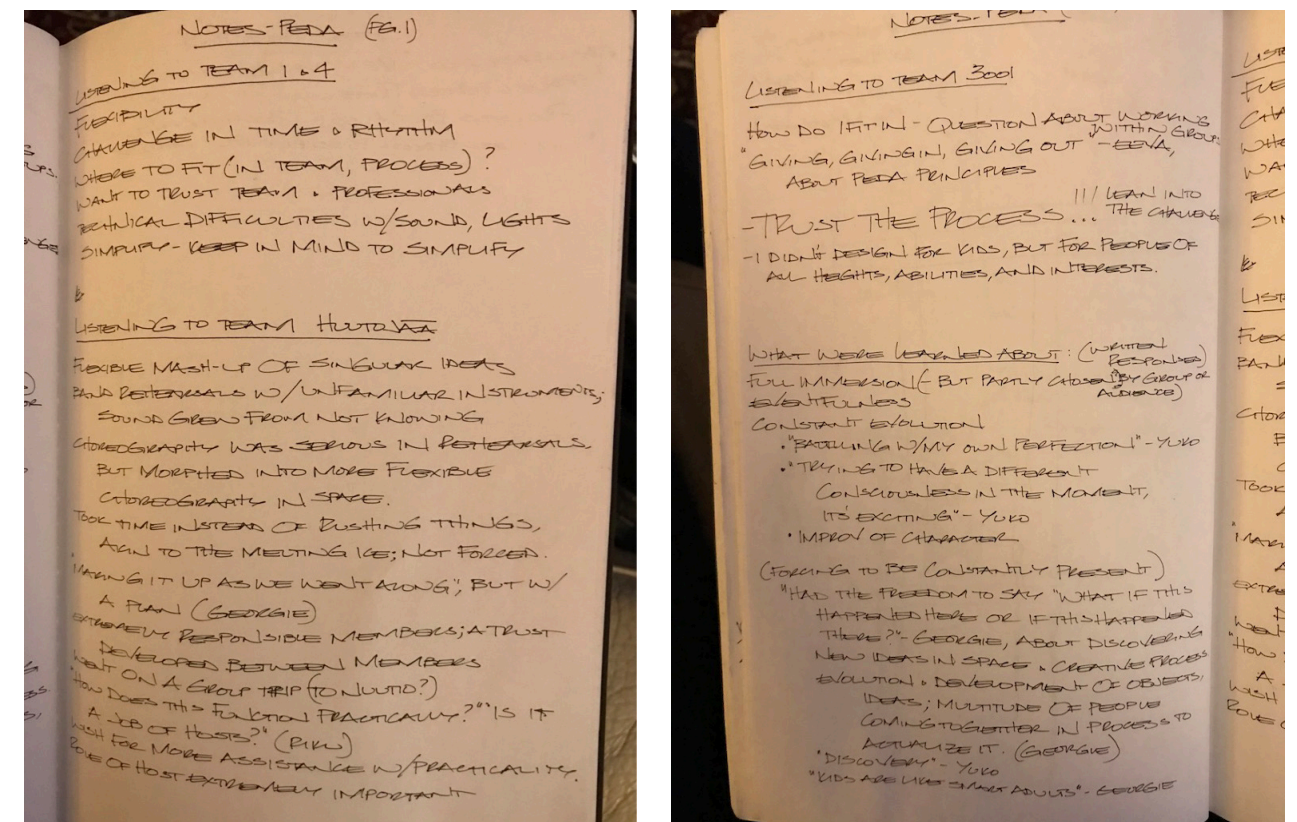 NOTES-PEDA (PG.1)
LISTENING TO TEAM 1 & 4
FLEXIBILITY
CHALLENGE IN TIME & RHYTHM
WHERE TO FIT (IN TEAM, PROCESS) ?
WANT TO TRUST TEAM & PROFESSIONALS
TECHNICAL DIFFICULTIES W/SOUND, LIGHTS
SIMPLIFY - KEEP IN MIND TO SIMPLIFY
LISTENING TO TEAM
FLEXIBLE MASH-UP OF SINGULAR IDEAS
BAND REHEARSALS W/UNFAMILIAR INSTRUMENTS;
SOUND GREW FROM NOT KNOWING
CHOREOGRAPHY WAS SERIOUS IN REHEARSALS,
BUT MORPHED INTO MORE FLEXIBLE
CHOREOGRAPHY IN SPACE.
TOOK TIME INSTEAD OF RUSHING THINGS,
AKIN TO THE MELTING ICE; NOT FORCED.
"MAKING IT UP AS WE WENT ALONG", BUT W/
A PLAN (GEORGIE)
EXTREMELY RESPONSIBLE MEMBERS; A TRUST
DEVELOPED BETWEEN MEMBERS
WENT ON A GROUP TRIP (TO
"HOW DOES THIS FUNCTION PRACTICALLY?" "IS IT
A JOB OF HOSTS?" (RIKU)
WISH FOR MORE ASSISTANCE W/PRACTICALITY.
ROLE OF HOST EXTREMELY IMPORTANT
NOTES-PEDA
LISTENING TO TEAM 3001
HOW DO I FIT IN - QUESTION ABOUT WORKING
WITHIN GROUP
"GIVING, GIVING IN, GIVING OUT" - EEVA,
ABOUT PEDA PRINCIPLES
!!! LEAN INTO
THE CHALLENGE
- TRUST THE PROCESS...
- I DIDN'T DESIGN FOR KIDS, BUT FOR PEOPLE OF
ALL HEIGHTS, ABILITIES, AND INTERESTS.
WHAT WERE LEARNED ABOUT: (WRITTEN
RESPONSES)
FULL IMMERSION (- BUT PARTLY CHOSEN BY GROUP OR
AUDIENCE)
EVENTFULNESS
CONSTANT EVOLUTION
• "BATTLING W/MY OWN PERFECTION" - YUKO
• "TRYING TO HAVE A DIFFERENT
CONSCIOUSNESS IN THE MOMENT,
ITS' EXCITING" - YUKO
• IMPROV OF CHARACTER
(FORCING TO BE CONSTANTLY PRESENT)
"HAD THE FREEDOM TO SAY "WHAT IF THIS
HAPPENED HERE OR IF THIS HAPPENED
THERE?" - GEORGIE, ABOUT DISCOVERING
NEW IDEAS IN SPACE & CREATIVE PROCESS
EVOLUTION & DEVELOPMENT OF OBJECTS,
IDEAS; MULTITUDE OF PEOPLE
COMING TOGETHER IN PROCESS TO
ACTUALIZE IT. (GEORGIE)
"DISCOVERY" - YUKO
"KIDS ARE LIKE SMART ADULTS" - GEORGIE